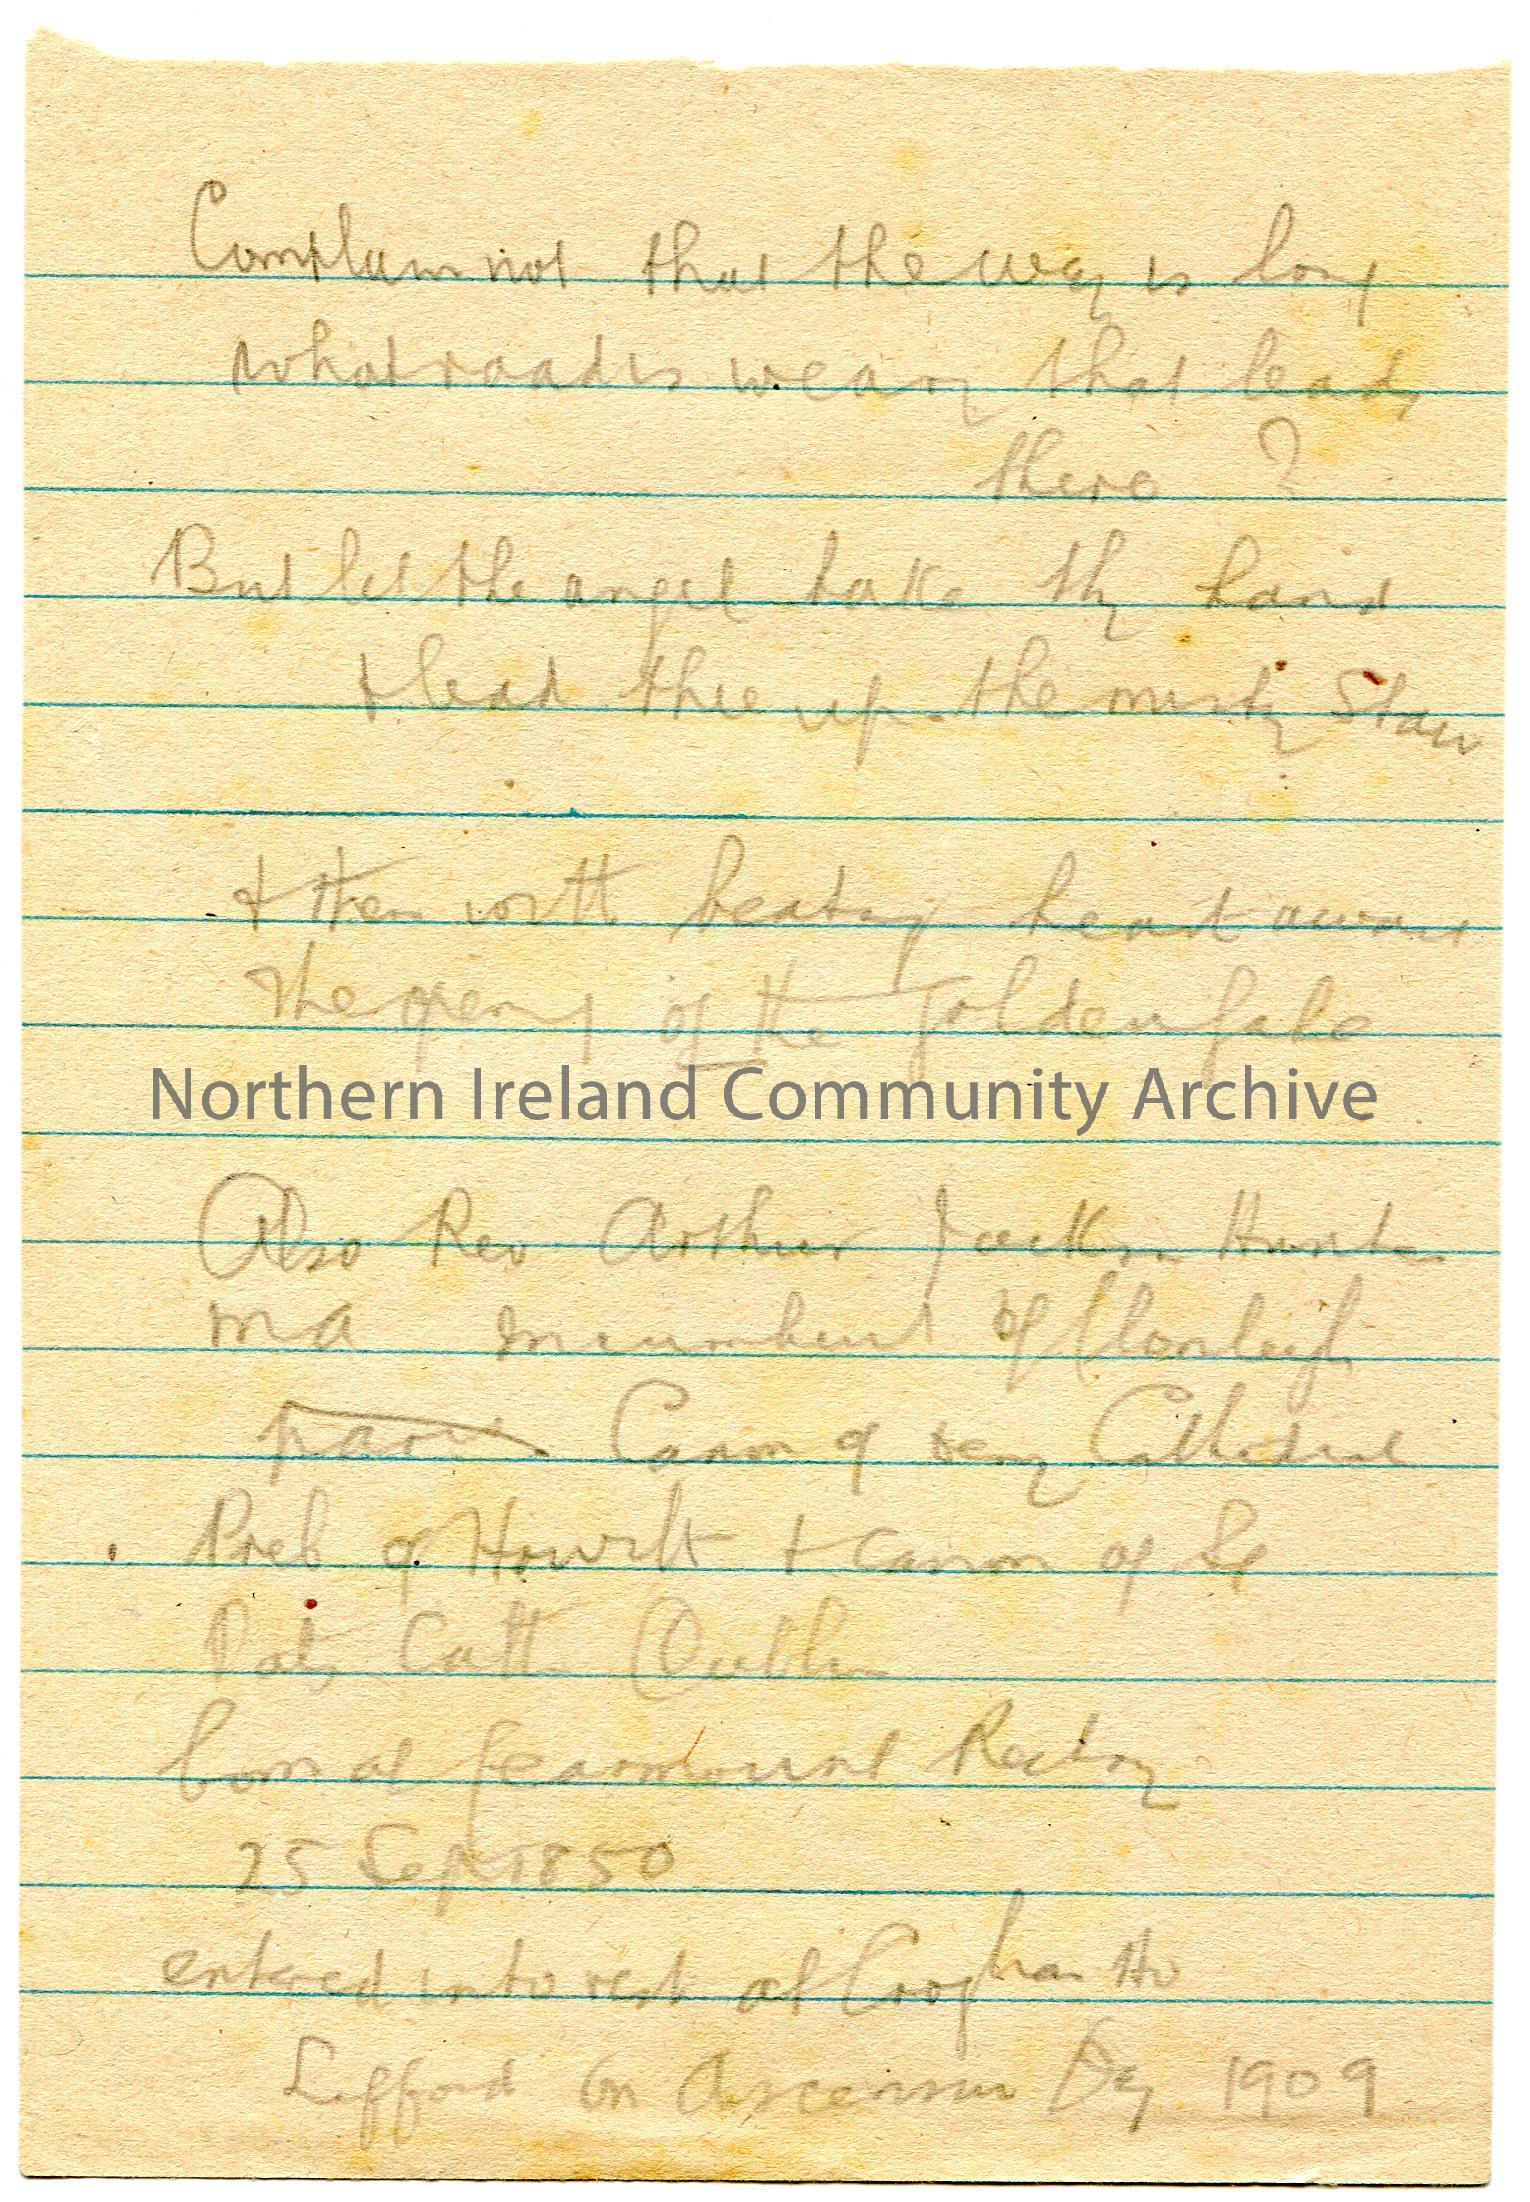 Complain not that the way is long
what road is weary that leads
there ?
But let the angel take thy hand
& lead thee up the misty Stair
& then with beating heart await
The opening of the Golden Gate
Northern Ireland Community Archive
Also Rev Arthur Jackson Hunter
MA incumbent of Clonleigh
parish Canon of Derry Cathedral
Preb of Howth & Canon of St
Pats Cath Dublin
born at Learmount Rectory
25 Sept 1850
entered into rest at Croghan Ho
Lifford on Ascension Day 1909